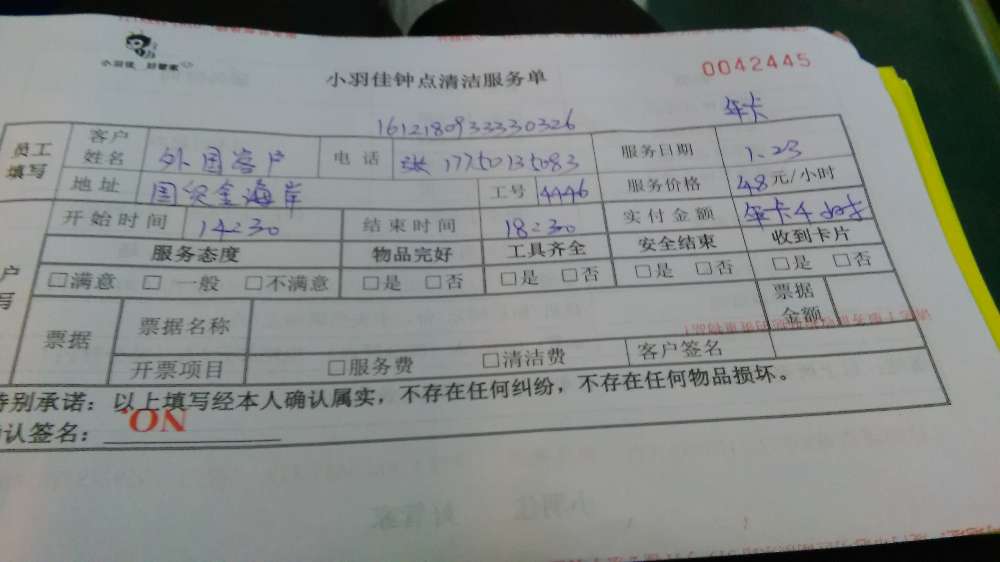 小羽佳 好管家
小羽佳钟点清洁服务单
0042445
1612180933330326
年卡
员工填写 客户姓名 外国客户 电话 张 17750135083 服务日期 1.23
地址 国贸金海岸 工号 4446 服务价格 48元/小时
开始时间 14:30 结束时间 18:30 实付金额 年卡4小时
服务态度 物品完好 工具齐全 安全结束 收到卡片
□满意 □一般 □不满意 □是 □否 □是 □否 □是 □否 □是 □否
票据 票据名称 票据金额
开票项目 □服务费 □清洁费 客户签名
特别承诺：以上填写经本人确认属实，不存在任何纠纷，不存在任何物品损坏。
确认签名：
NO.